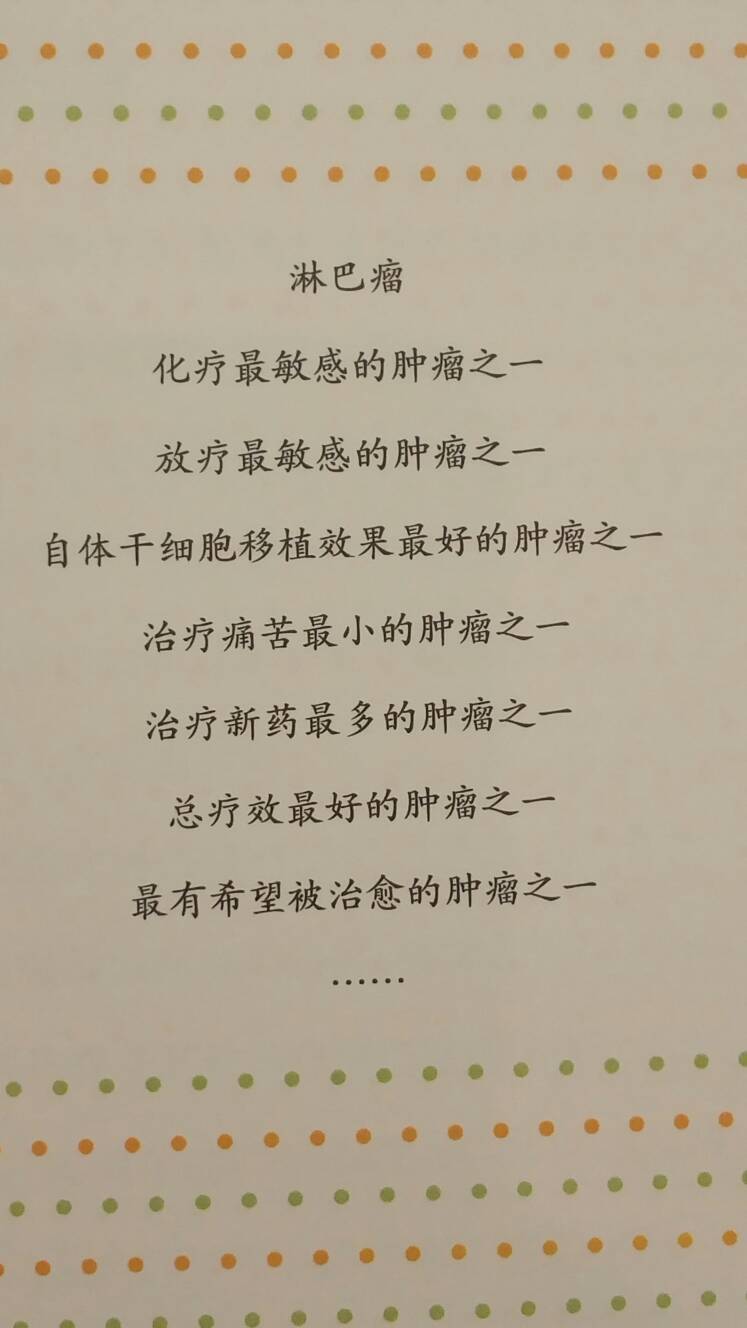 淋巴瘤
化疗最敏感的肿瘤之一
放疗最敏感的肿瘤之一
自体干细胞移植效果最好的肿瘤之一
治疗痛苦最小的肿瘤之一
治疗新药最多的肿瘤之一
总疗效最好的肿瘤之一
最有希望被治愈的肿瘤之一
……